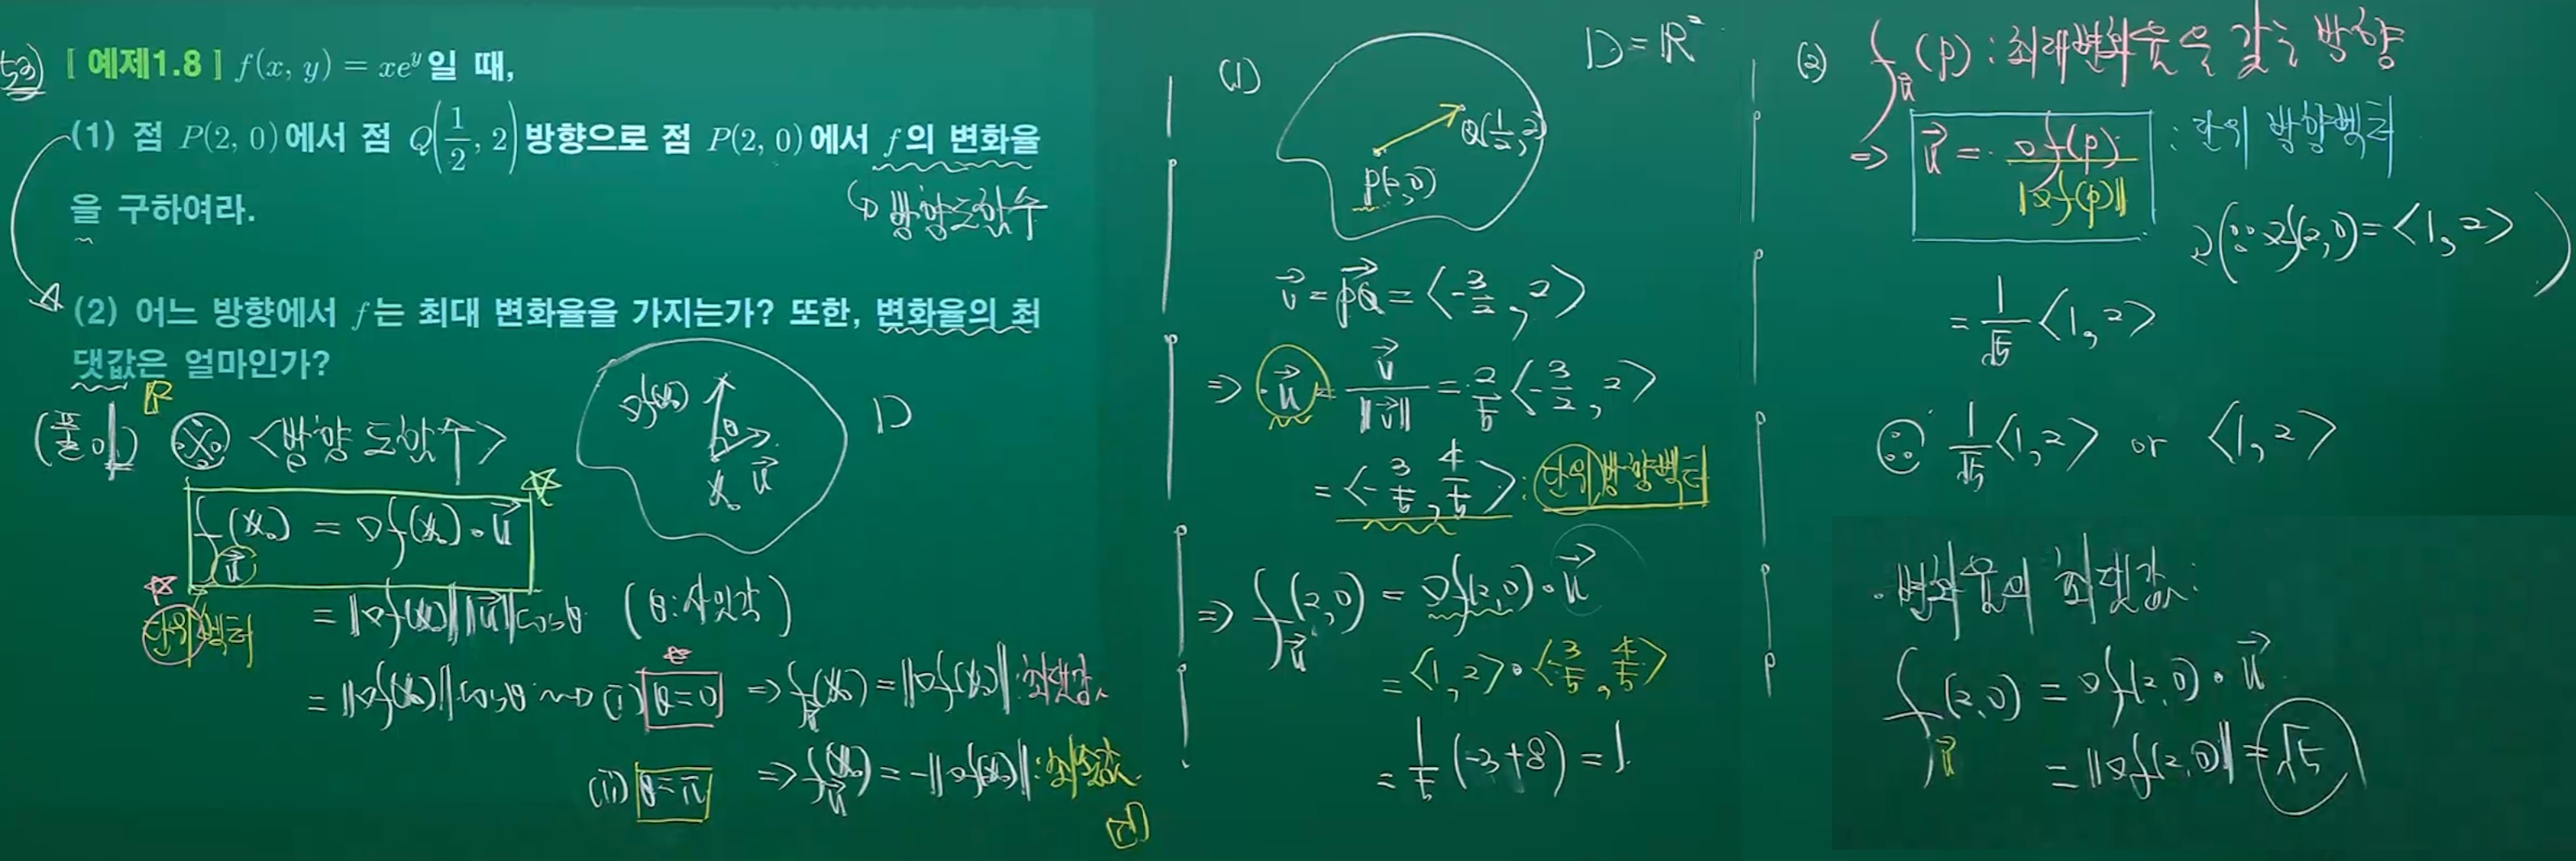 [예제1.8] f(x, y) = xe^y일 때,
(1) 점 P(2, 0)에서 점 Q(1/2, 2)방향으로 점 P(2, 0)에서 f의 변화율
을 구하여라.
방향도함수
(2) 어느 방향에서 f는 최대 변화율을 가지는가? 또한, 변화율의 최
댓값은 얼마인가?
(풀이) ※ <방향도함수>
∇f(x₀) θ u⃗ x₀ D
f_u⃗(x₀) = ∇f(x₀)·u⃗
단위벡터
= ‖∇f(x₀)‖‖u⃗‖cosθ (θ:사잇각)
= ‖∇f(x₀)‖cosθ (i) θ=0 ⇒ f_u⃗(x₀) = ‖∇f(x₀)‖: 최댓값
(ii) θ=π ⇒ f_u⃗(x₀) = -‖∇f(x₀)‖: 최솟값
(1) D = ℝ²
Q(1/2, 2)
P(2,0)
v⃗ = PQ⃗ = <-3/2, 2>
⇒ u⃗ = v⃗/‖v⃗‖ = 2/5 <-3/2, 2>
= <-3/5, 4/5> : 단위방향벡터
⇒ f_u⃗(2,0) = ∇f(2,0)·u⃗
= <1, 2>·<-3/5, 4/5>
= 1/5 (-3+8) = 1
(2) f_u⃗(p) : 최대변화율을 갖는 방향
⇒ u⃗ = ∇f(p)/‖∇f(p)‖ : 단위 방향벡터
(∵ ∇f(2,0) = <1, 2>)
= 1/√5 <1, 2>
∴ 1/√5 <1, 2> or <1, 2>
·변화율의 최댓값:
f_u⃗(2,0) = ∇f(2,0)·u⃗
= ‖∇f(2,0)‖ = √5